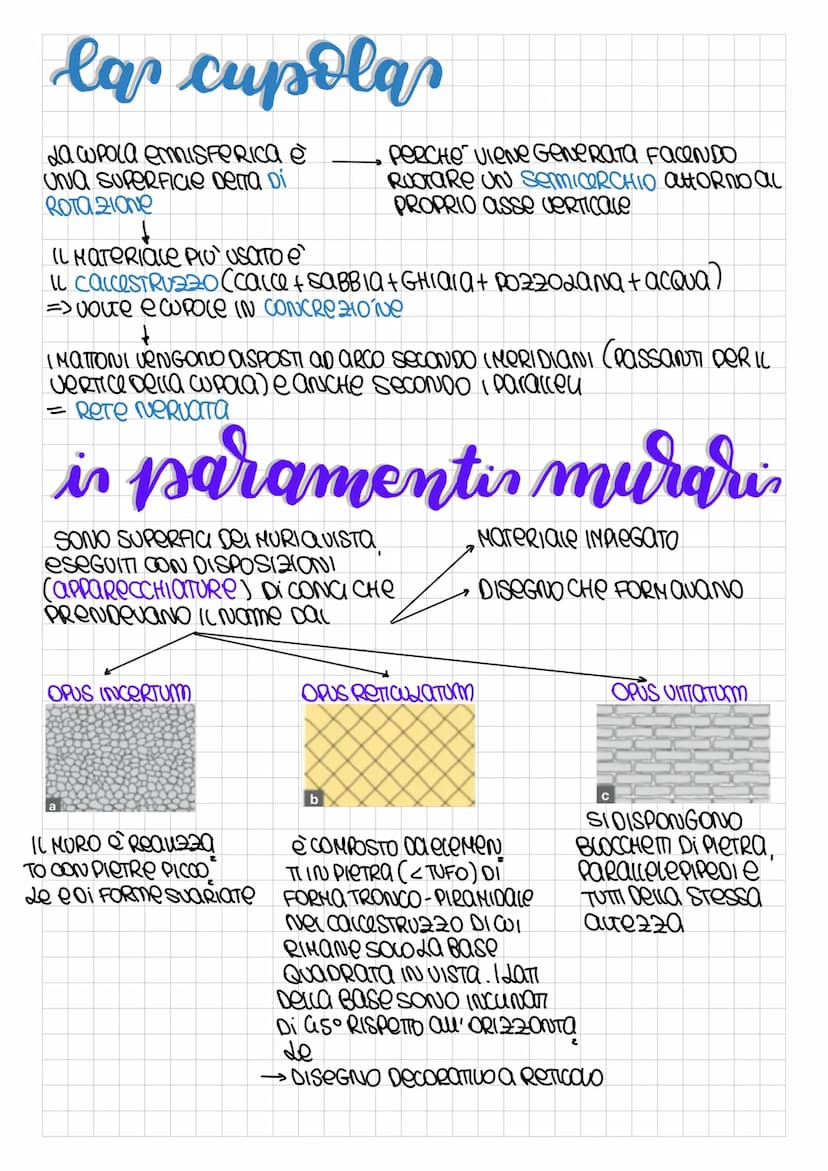 la cupola
LA CUPOLA EMISFERICA È
UNA SUPERFICIE DETTA DI
ROTAZIONE
PERCHÈ VIENE GENERATA FACENDO
RUOTARE UN SEMICERCHIO ATTORNO AL
PROPRIO ASSE VERTICALE
IL MATERIALE PIÙ USATO È
IL CALCESTRUZZO (CALCE + SABBIA + GHIAIA + POZZOLANA + ACQUA)
=> VOLTE E CUPOLE IN CONCREZIONE
I MATTONI VENGONO DISPOSTI AD ARCO SECONDO I MERIDIANI (PASSANTI PER IL
VERTICE DELLA CUPOLA) E ANCHE SECONDO I PARALLELI
= RETE NERVATA
i paramenti murari
SONO SUPERFICI DEI MURI A VISTA,
ESEGUITI CON DISPOSIZIONI
(APPARECCHIATURE) DI CONCI CHE
PRENDEVANO IL NOME DAL
MATERIALE IMPIEGATO
DISEGNO CHE FORMAVANO
OPUS INCERTUM
a
IL MURO È REALIZZA
TO CON PIETRE PICCO
LE E DI FORME SVARIATE
OPUS RETICULATUM
b
È COMPOSTO DA ELEMEN
TI IN PIETRA (< TUFO) DI
FORMA TRONCO-PIRAMIDALE
NEL CALCESTRUZZO DI CUI
RIMANE SOLO LA BASE
QUADRATA IN VISTA. I LATI
DELLA BASE SONO INCLINATI
DI 45° RISPETTO ALL'ORIZZONTA
LE
→ DISEGNO DECORATIVO A RETICOLO
OPUS VITTATUM
c
SI DISPONGONO
BLOCCHETTI DI PIETRA,
PARALLELEPIPEDI E
TUTTI DELLA STESSA
ALTEZZA